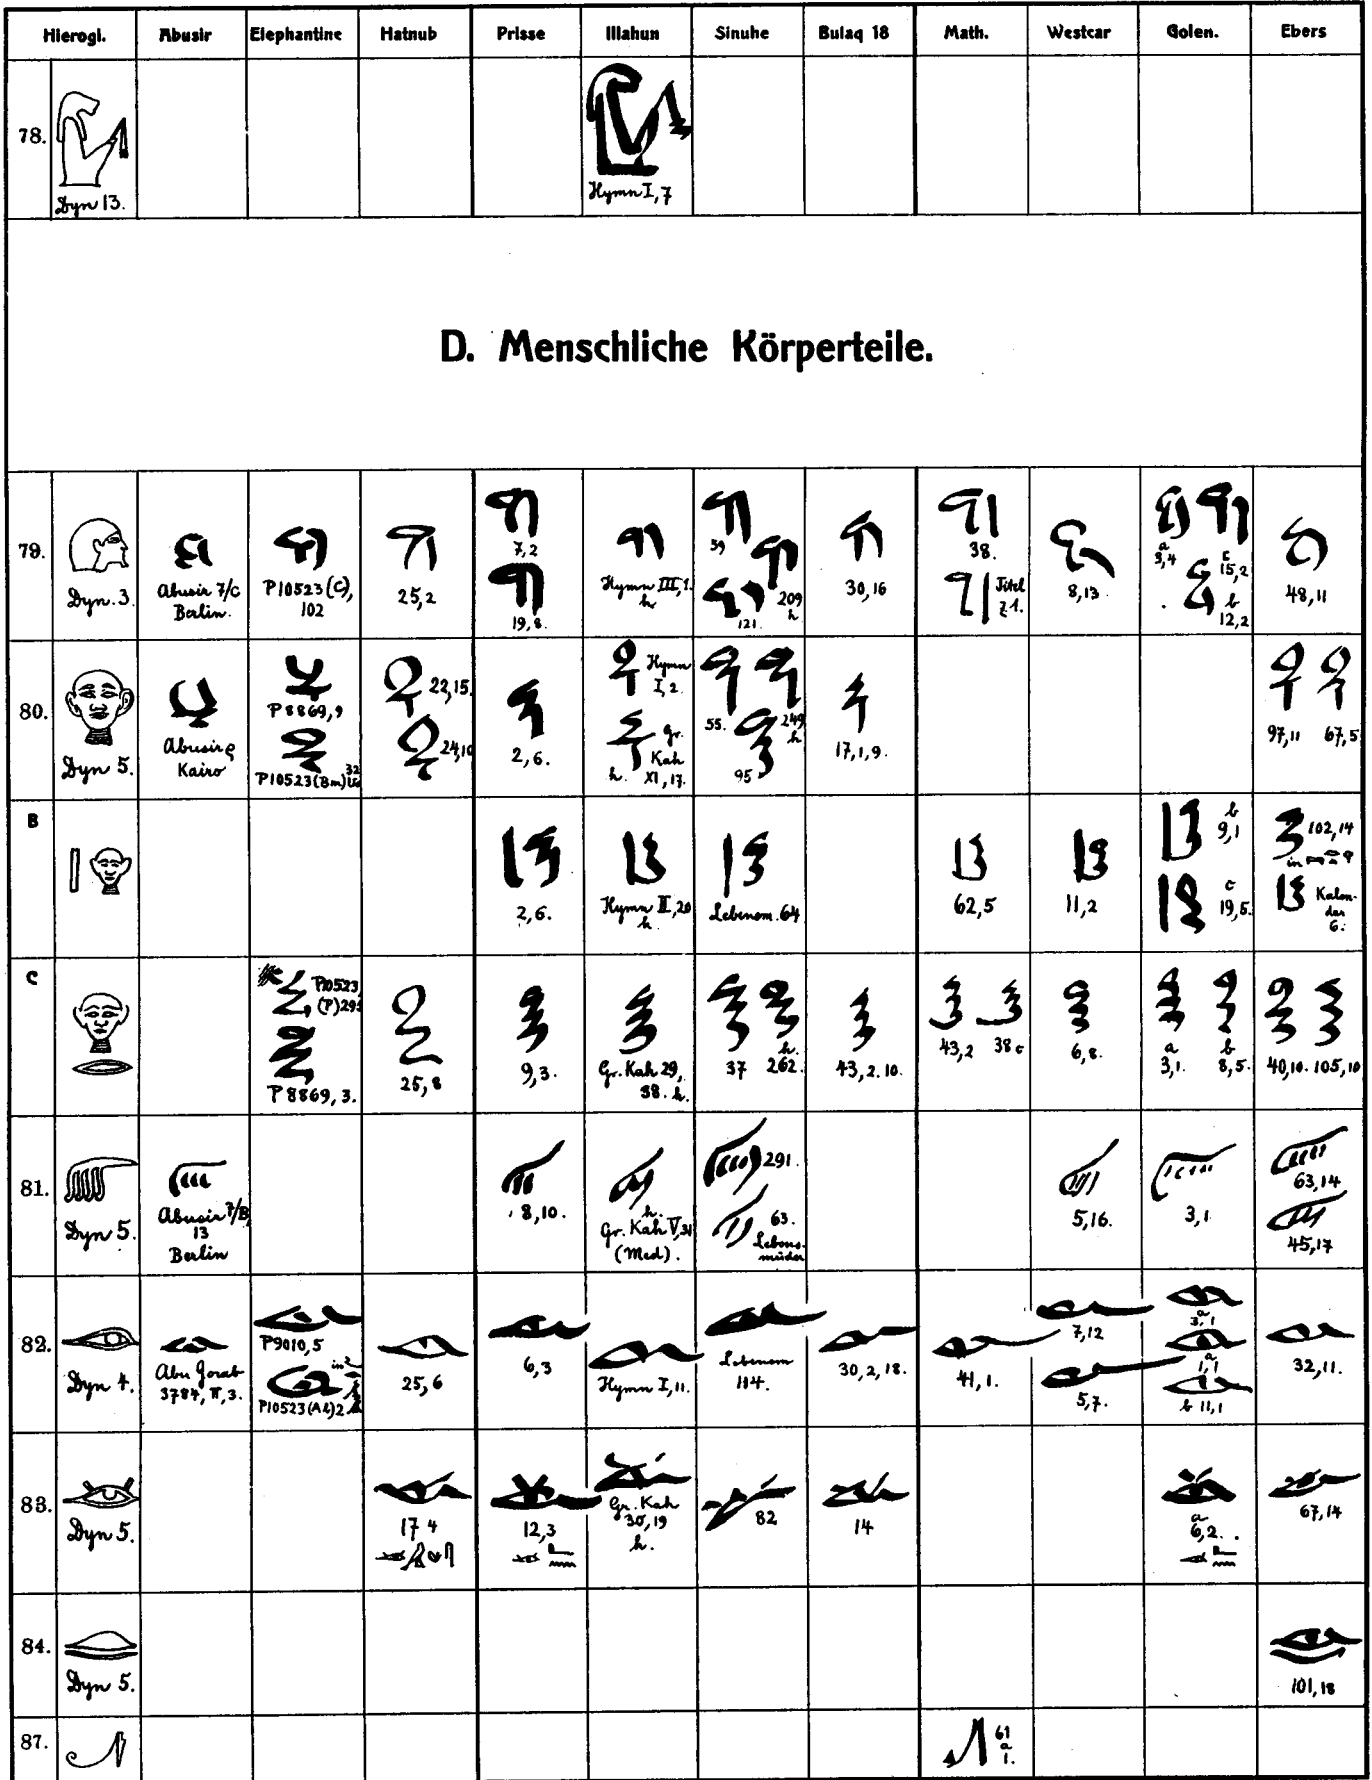 Hierogl. Abusir Elephantine Hatnub Prisse Illahun Sinuhe Bulaq 18 Math. Westcar Golen. Ebers
78.
Dyn 13.
Hymn I, 7
D. Menschliche Körperteile.
79.
Dyn. 3
Abusir 7/C
Berlin.
P10523 (C),
102
25,2
7,2
19,8.
Hymn III, 1.
h
59
209
h
121.
30,16
38.
Titel
Z.1.
8,13
a
3,4
c
15,2
b
12,2
48,11
80.
Dyn 5.
Abusir
Kairo
P8869,9
P10523(Bm)
22,15.
2,6.
Hymn
I, 2.
Gr.
Kah
h. XI, 17.
55.
249
h
95
17,1,9.
97,11 67,5
B
2,6.
Hymn II, 20
h.
Lebensm. 64
62,5
11,2
b
9,1
c
19,5.
102,14
in
Kalen-
der
6.
C
P10523
P8869, 3.
25,8
9,3.
Gr. Kah 29,
38. h.
37
h.
262.
43,2.10.
43,2 38c
6,8.
a
3,1.
b
8,5.
40,10. 105,10
81.
Dyn 5.
Abusir 7/B,
13
Berlin
8,10.
h.
Gr. Kah V,
(Med).
291.
63.
Lebens-
müder
5,16.
3,1
63,14
45,17
82.
Dyn 4.
Abu Gorab
3784, II, 3.
P9010,5
P10523(Ab)2
25,6
6,3
Hymn I, 11.
Lebensm
114.
30,2,18.
41,1.
7,12
5,7.
a
3,1
a
1,1
b 11,1
32,11.
83.
Dyn 5.
17 4
12,3
Gr. Kah
30,19
h.
82
14
a
6,2.
67,14
84.
Dyn 5.
101,18
87.
61
a
1.